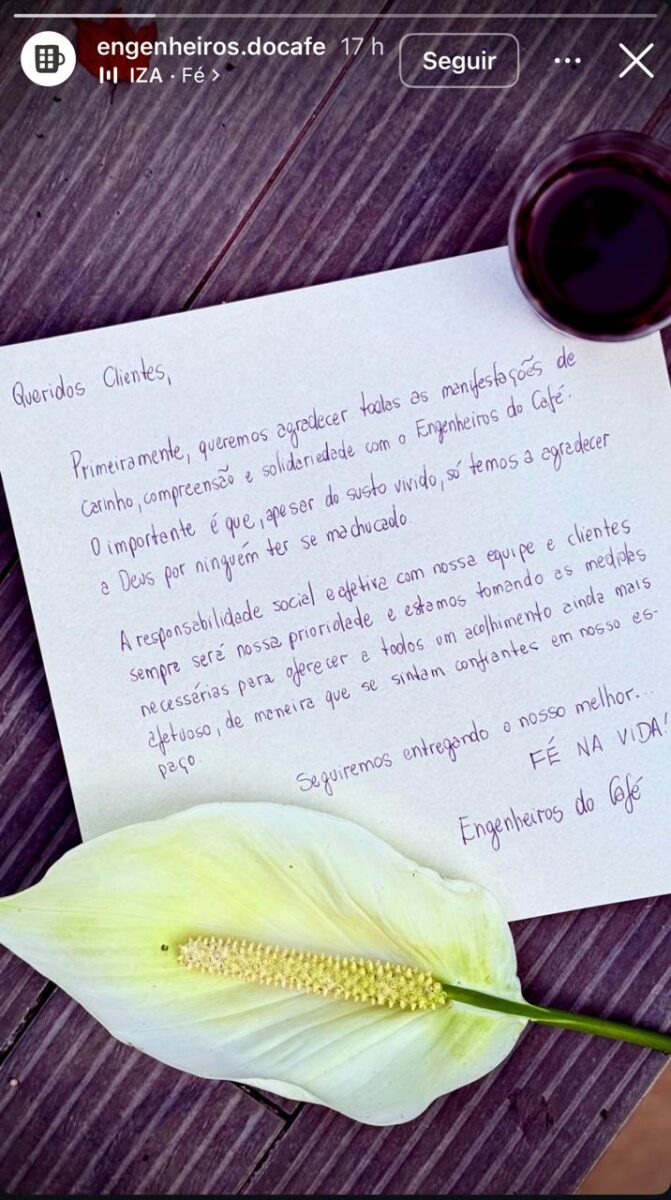 engenheiros.docafe 17 h
Seguir
IZA · Fé >
Queridos Clientes,
Primeiramente, queremos agradecer todas as manifestações de
carinho, compreensão e solidariedade com o Engenheiros do Café.
O importante é que, apesar do susto vivido, só temos a agradecer
a Deus por ninguém ter se machucado.
A responsabilidade social e afetiva com nossa equipe e clientes
sempre será nossa prioridade e estamos tomando as medidas
necessárias para oferecer a todos um acolhimento ainda mais
afetuoso, de maneira que se sintam confiantes em nosso es-
paço.
Seguiremos entregando o nosso melhor...
FÉ NA VIDA!
Engenheiros do Café